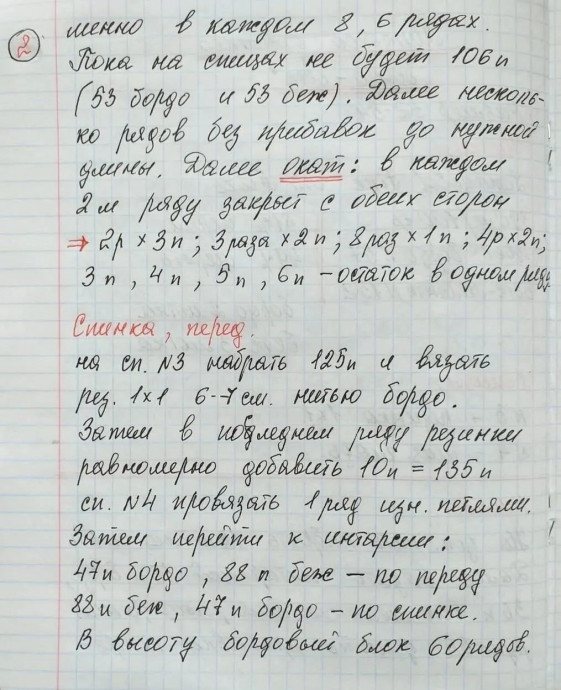 2
менно в каждом 8, 6 рядах.
Пока на спицах не будет 106п
(53 бордо и 53 беж). Далее несколь-
ко рядов без прибавок до нужной
длины. Далее окат: в каждом
2м ряду закрыт с обеих сторон
⇒ 2р × 3п; 3 раза × 2п; 8 раз × 1п; 4р × 2п;
3п, 4п, 5п, 6п – остаток в одном ряду
Спинка, перед.
на сп. N3 набрать 125п и вязать
рез. 1×1 6-7 см. нитью бордо.
Затем в последнем ряду резинки
равномерно добавить 10п = 135п
сп. N4 провязать 1 ряд изн. петлями.
Затем перейти к интарсии:
47п бордо, 88 п беж – по переду
88п беж, 47п бордо – по спинке.
В высоту бордовый блок 60 рядов.